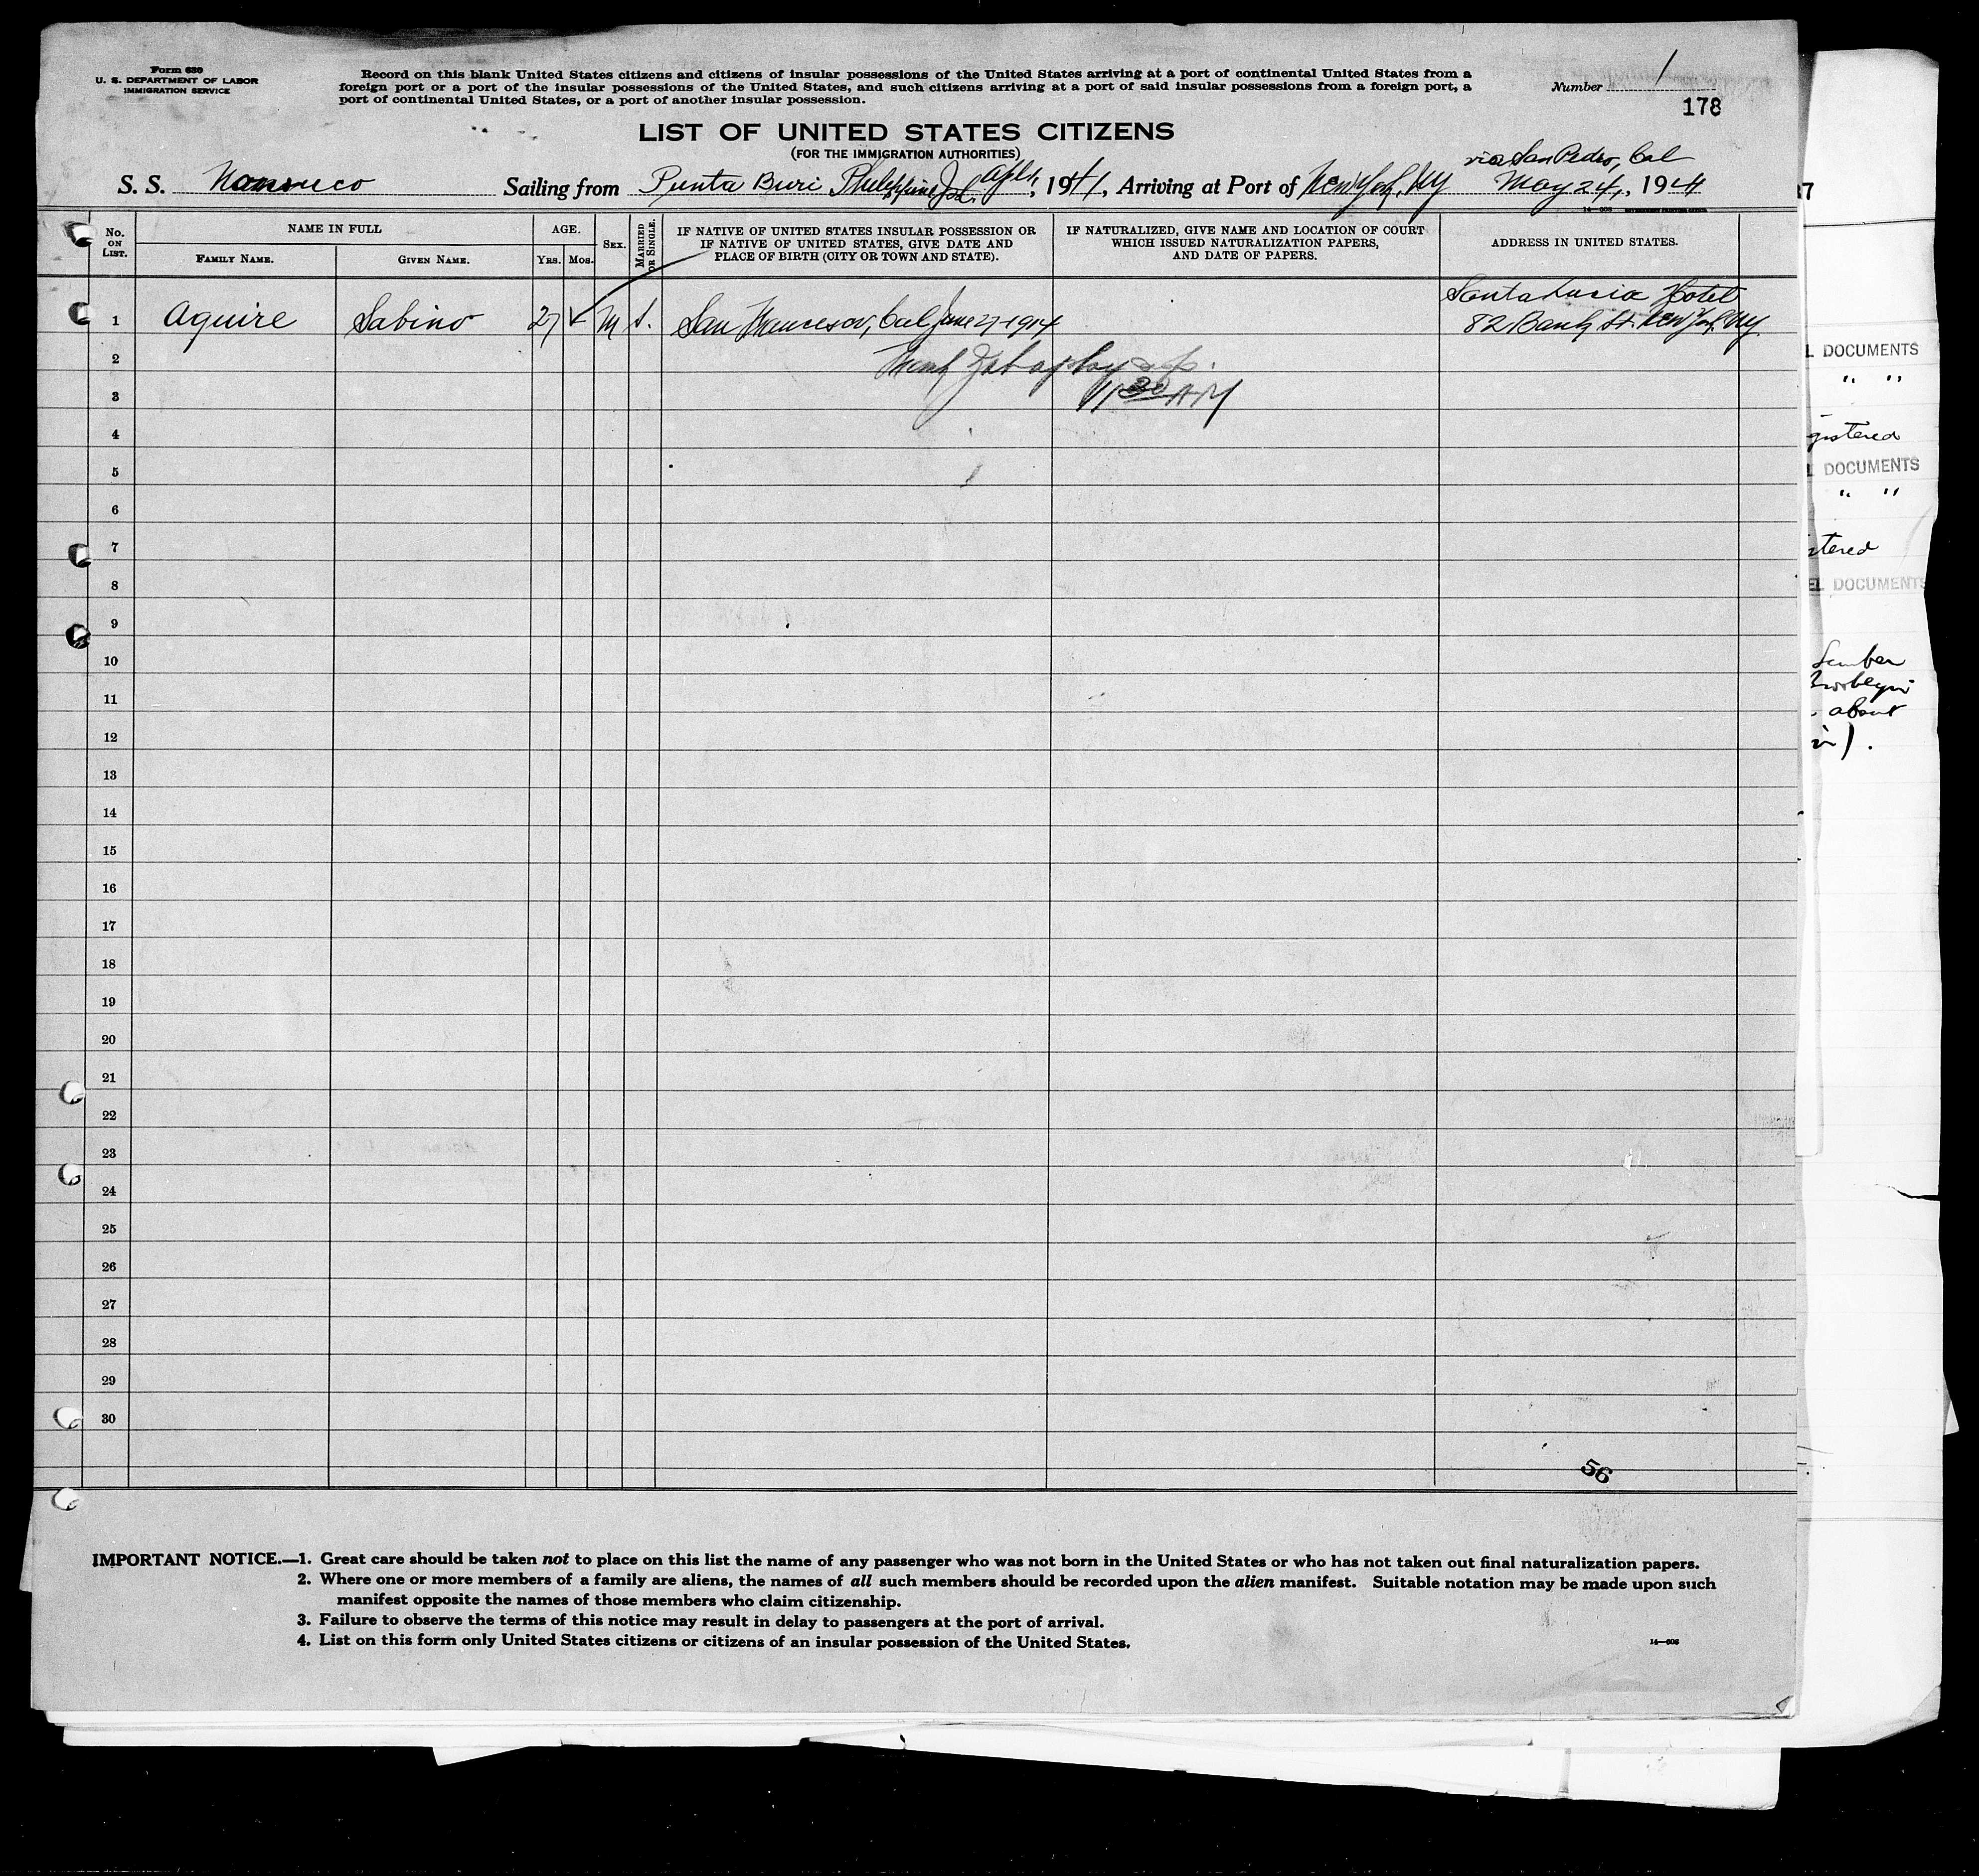 Form 630
U. S. DEPARTMENT OF LABOR
IMMIGRATION SERVICE
Record on this blank United States citizens and citizens of insular possessions of the United States arriving at a port of continental United States from a
foreign port or a port of the insular possessions of the United States, and such citizens arriving at a port of said insular possessions from a foreign port, a
port of continental United States, or a port of another insular possession.
Number 1
178
LIST OF UNITED STATES CITIZENS
(FOR THE IMMIGRATION AUTHORITIES)
via San Pedro, Cal
S. S. Sailing from Punta Buri Philippine Isl. Apl 1, 1941, Arriving at Port of New York, NY May 24, 1941
14-608
No. ON LIST.
NAME IN FULL
FAMILY NAME.
GIVEN NAME.
AGE.
YRS.
MOS.
SEX.
MARRIED OR SINGLE.
IF NATIVE OF UNITED STATES INSULAR POSSESSION OR
IF NATIVE OF UNITED STATES, GIVE DATE AND
PLACE OF BIRTH (CITY OR TOWN AND STATE).
IF NATURALIZED, GIVE NAME AND LOCATION OF COURT
WHICH ISSUED NATURALIZATION PAPERS,
AND DATE OF PAPERS.
ADDRESS IN UNITED STATES.
Santa Lucia Hotel
1 Aguire Sabino 27 M S. San Francisco, Cal June 27-1914 82 Bank St. New York, NY
2
3 11 30 AM
4
5
6
7
8
9
10
11
12
13
14
15
16
17
18
19
20
21
22
23
24
25
26
27
28
29
30
56
IMPORTANT NOTICE.—1. Great care should be taken not to place on this list the name of any passenger who was not born in the United States or who has not taken out final naturalization papers.
2. Where one or more members of a family are aliens, the names of all such members should be recorded upon the alien manifest. Suitable notation may be made upon such
manifest opposite the names of those members who claim citizenship.
3. Failure to observe the terms of this notice may result in delay to passengers at the port of arrival.
4. List on this form only United States citizens or citizens of an insular possession of the United States.
14—608
DOCUMENTS
" "
DOCUMENTS
" "
DOCUMENTS
about